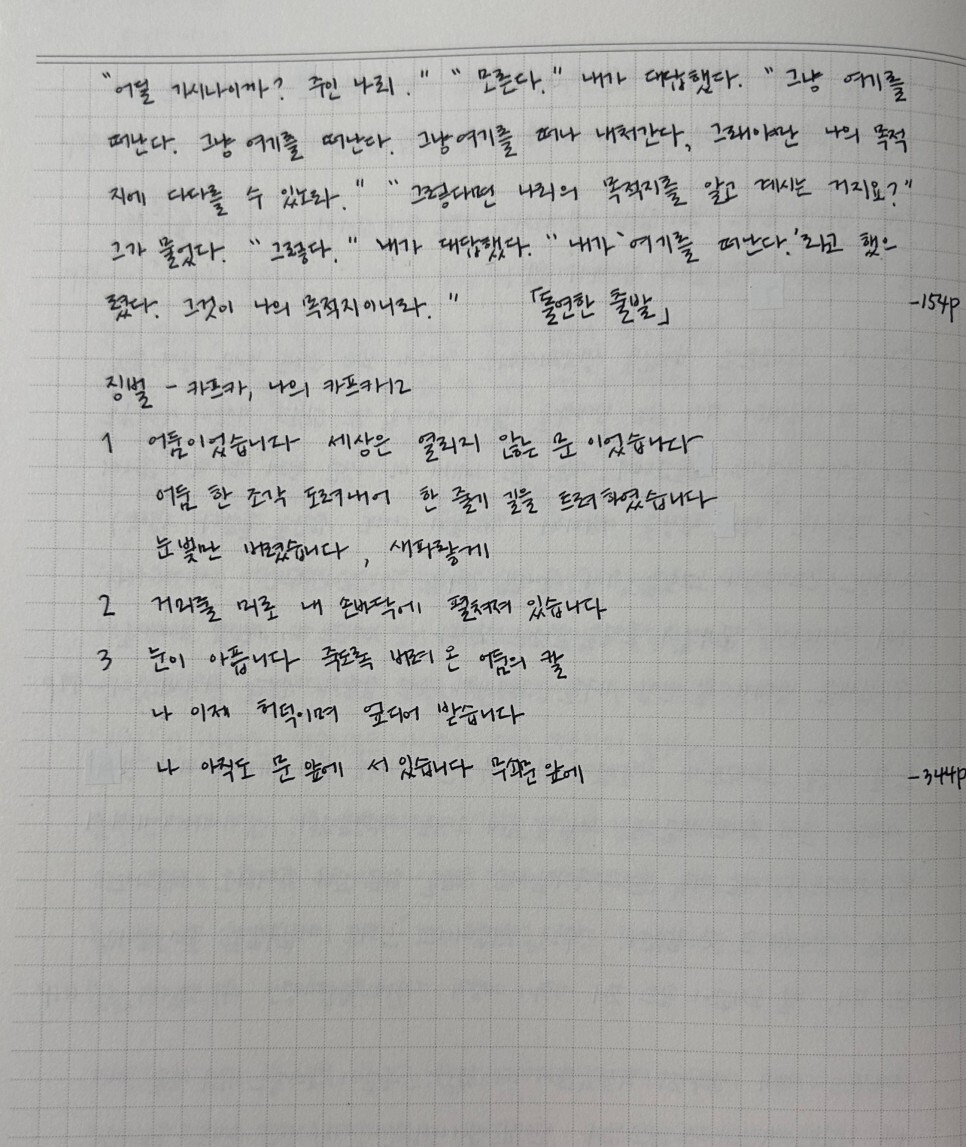 "어딜 가시나이까? 주인 나리." "모른다." 내가 대답했다. "그냥 여기를
떠난다. 그냥 여기를 떠난다. 그냥 여기를 떠나 내처간다, 그래야만 나의 목적
지에 다다를 수 있노라." "그렇다면 나리의 목적지를 알고 계시는 거지요?"
그가 물었다. "그렇다." 내가 대답했다. "내가 '여기를 떠난다.'라고 했으
렷다. 그것이 나의 목적지이니라." 「돌연한 출발」 -154p
징벌 - 카프카, 나의 카프카 12
1 어둠이었습니다 세상은 열리지 않는 문 이었습니다
어둠 한 조각 도려내어 한 줄기 길을 드려 하였습니다
눈빛만 버렸습니다, 새파랗게
2 거미줄 미로 내 손바닥에 펼쳐져 있습니다
3 눈이 아픕니다 죽도록 버려 온 어둠의 칼
나 이제 허덕이며 엎디어 받습니다
나 아직도 문 앞에 서 있습니다 무쇠문 앞에 -344p